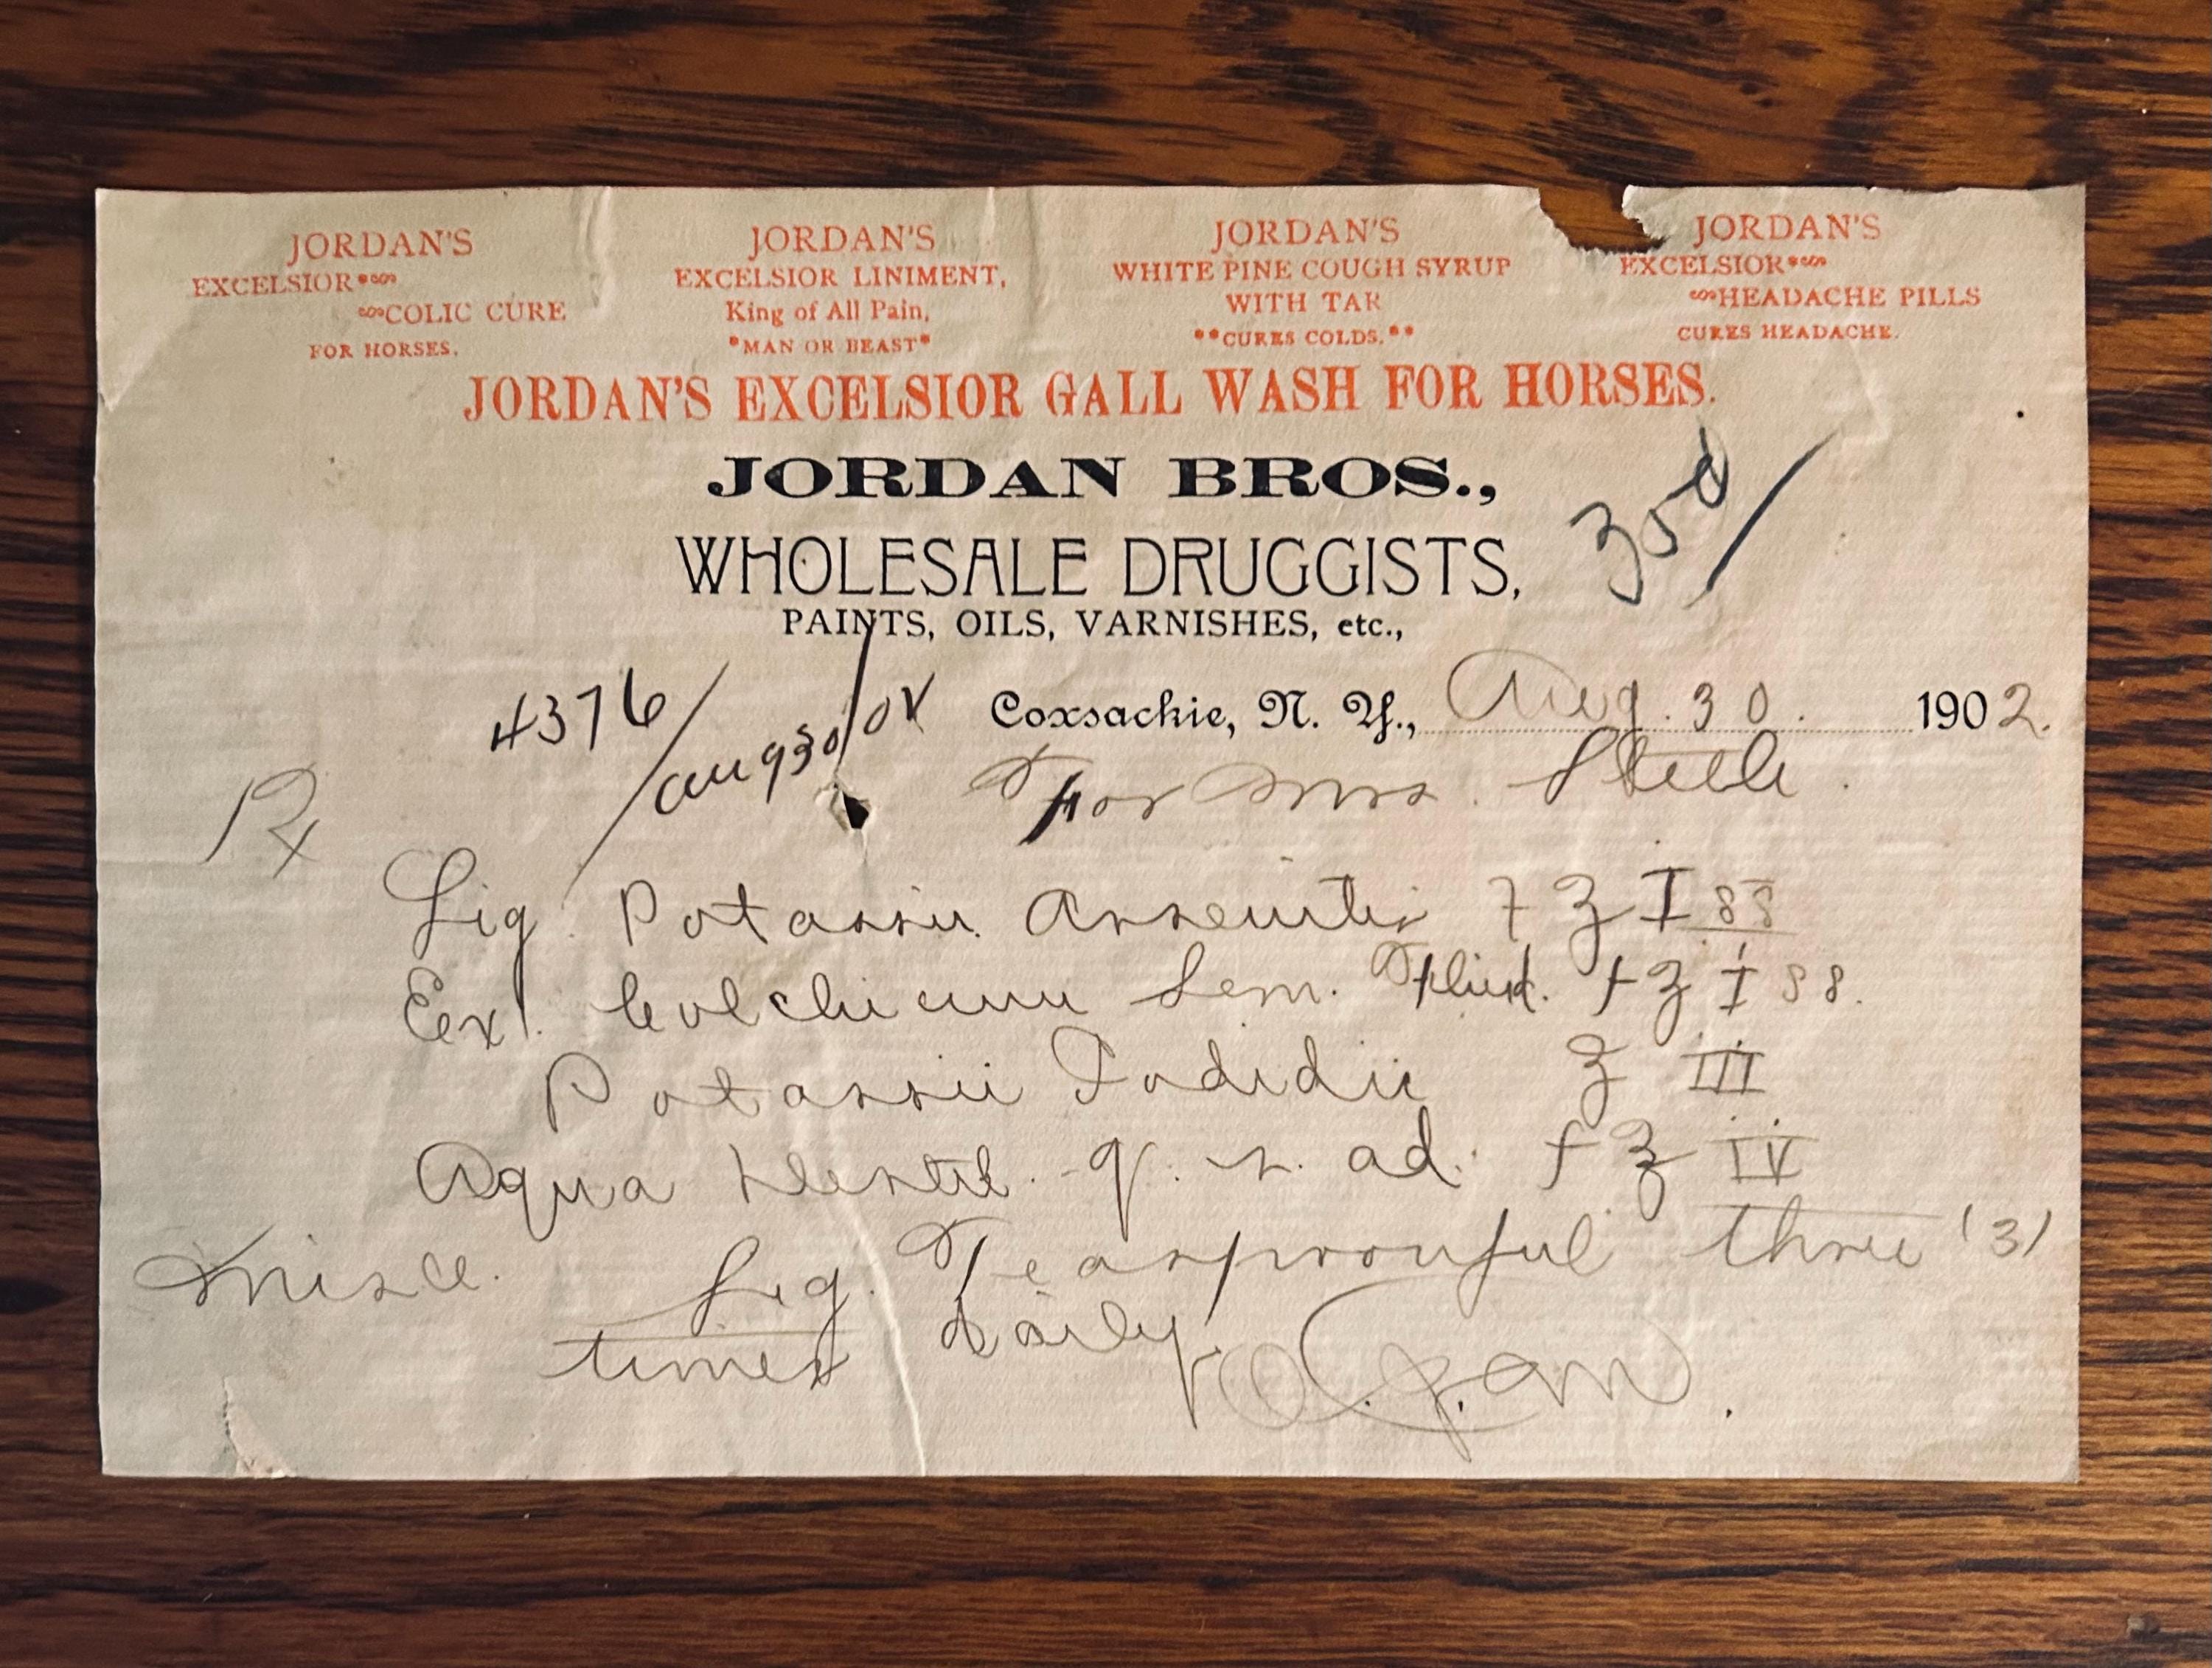 JORDAN'S
EXCELSIOR
COLIC CURE
FOR HORSES.
JORDAN'S
EXCELSIOR LINIMENT,
King of All Pain,
*MAN OR BEAST*
JORDAN'S
WHITE PINE COUGH SYRUP
WITH TAR
**CURES COLDS.**
JORDAN'S
EXCELSIOR
HEADACHE PILLS
CURES HEADACHE.
JORDAN'S EXCELSIOR GALL WASH FOR HORSES.
JORDAN BROS.,
WHOLESALE DRUGGISTS,
PAINTS, OILS, VARNISHES, etc.,
3rd/
4376/
aug 30/02
Coxsackie, N. Y., Aug. 30. 1902.
For Mrs. Steele.
Rx
Liq. Potassii Arsenitis f ʒ I ss
Ext. Colchicum Sem. Fluid. f ʒ I ss.
Potassii Iodidii ʒ III
Aqua Destil. q. s. ad. f ℥ IV
Misce. Sig. Teaspoonful three (3)
times daily